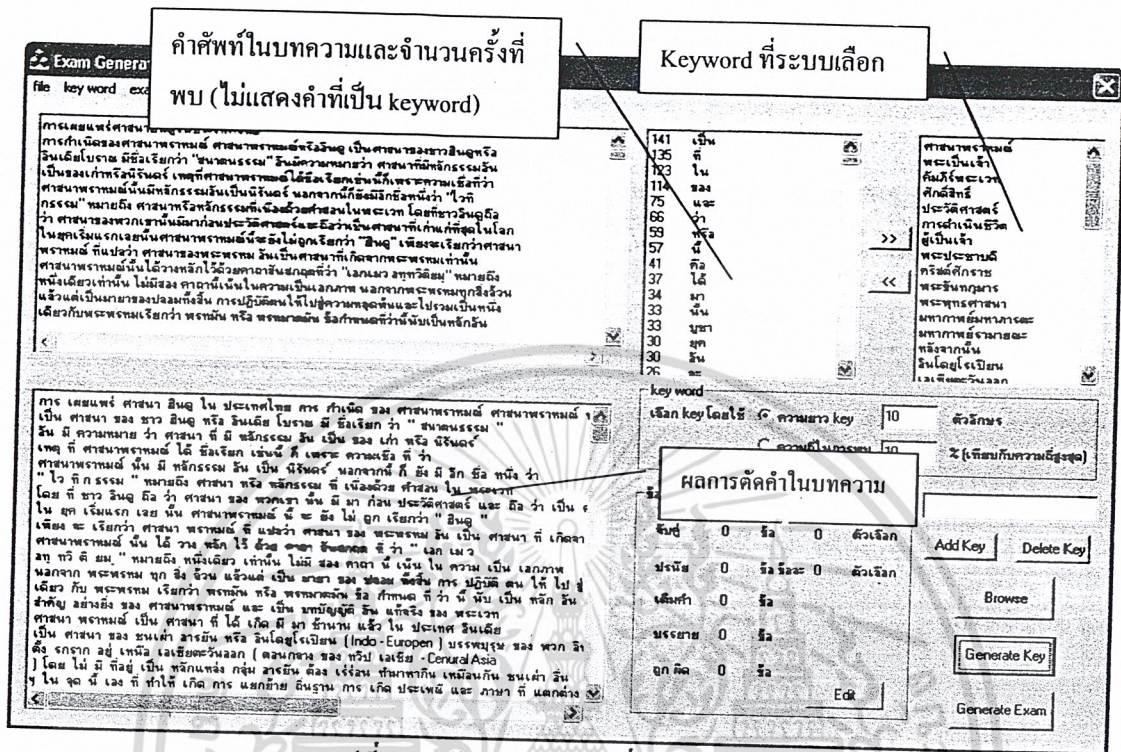 คำศัพท์ในบทความและจำนวนครั้งที่
พบ (ไม่แสดงคำที่เป็น keyword)
Keyword ที่ระบบเลือก
Exam Genera
file key word exa
การกำเนิดของศาสนาพราหมณ์ ศาสนาพราหมณ์หรือฮินดู เป็นศาสนาของชาวฮินดูหรือ
อินเดียโบราณ มีชื่อเรียกว่า "สนาตนธรรม" อันมีความหมายว่า ศาสนาที่มีหลักธรรมอัน
เป็นของเก่าหรือนิรันดร์ เหตุที่ศาสนาพราหมณ์ได้ชื่อเรียกเช่นนี้ก็เพราะความเชื่อที่ว่า
ศาสนาพราหมณ์นั้นมีหลักธรรมอันเป็นนิรันดร์ นอกจากนี้ก็ยังมีอีกชื่อหนึ่งว่า "ไวทิ
กธรรม" หมายถึง ศาสนาหรือหลักธรรมที่เนื่องด้วยคำสอนในพระเวท โดยที่ชาวฮินดูถือ
ว่า ศาสนาของพวกเขานั้นมีมาก่อนประวัติศาสตร์และถือว่าเป็นศาสนาที่เก่าแก่ที่สุดในโลก
ในยุคเริ่มแรกเลยนั้นศาสนาพราหมณ์นี้จะยังไม่ถูกเรียกว่า "ฮินดู" เพียงจะเรียกว่าศาสนา
พราหมณ์ ที่แปลว่า ศาสนาของพระพรหม อันเป็นศาสนาที่เกิดจากพระพรหมเท่านั้น
ศาสนาพราหมณ์นั้นได้วางหลักไว้ด้วยคาถาสันสกฤตที่ว่า "เอกเมว อทฺทวิติยมฺ" หมายถึง
หนึ่งเดียวเท่านั้น ไม่มีสอง คาถานี้เน้นในความเป็นเอกภาพ นอกจากพระพรหมทุกสิ่งล้วน
แล้วแต่เป็นมายาของปลอมทั้งสิ้น การปฏิบัติตนให้ไปสู่ความหลุดพ้นและไปรวมเป็นหนึ่ง
เดียวกับพระพรหมเรียกว่า พรหมัน หรือ พรหมาตมัน ข้อกำหนดที่ว่านี้นับเป็นหลักอัน
141 เป็น
135 ที่
123 ใน
114 ของ
75 และ
66 ว่า
59 หรือ
57 นี้
41 คือ
37 ได้
34 มา
33 นั้น
33 บูชา
30 ยุค
30 อัน
26 จะ
>>
<<
ศาสนาพราหมณ์
พระเป็นเจ้า
คัมภีร์พระเวท
ศักดิ์สิทธิ์
ประวัติศาสตร์
การดำเนินชีวิต
ผู้เป็นเจ้า
พระประชาบดี
คริสต์ศักราช
พระขันทกุมาร
พระพุทธศาสนา
มหากาพย์มหาภารตะ
มหากาพย์รามายณะ
หลังจากนั้น
อินโดยูโรเปียน
เอเชียตะวันออก
การ เผยแพร่ ศาสนา ฮินดู ใน ประเทศไทย การ กำเนิด ของ ศาสนาพราหมณ์ ศาสนาพราหมณ์
เป็น ศาสนา ของ ชาว ฮินดู หรือ อินเดีย โบราณ มี ชื่อเรียก ว่า " สนาตนธรรม "
อัน มี ความหมาย ว่า ศาสนา ที่ มี หลักธรรม อัน เป็น ของ เก่า หรือ นิรันดร์
เหตุ ที่ ศาสนาพราหมณ์ ได้ ชื่อเรียก เช่นนี้ ก็ เพราะ ความเชื่อ ที่ ว่า
ศาสนาพราหมณ์ นั้น มี หลักธรรม อัน เป็น นิรันดร์ นอกจากนี้ ก็ ยัง มี อีก ชื่อ หนึ่ง ว่า
" ไว ทิ ก ธรรม " หมายถึง ศาสนา หรือ หลักธรรม ที่ เนื่องด้วย คำสอน ใน พระเวท
โดย ที่ ชาว ฮินดู ถือ ว่า ศาสนา ของ พวกเขา นั้น มี มา ก่อน ประวัติศาสตร์ และ ถือ ว่า เป็น
ใน ยุค เริ่มแรก เลย นั้น ศาสนาพราหมณ์ นี้ จะ ยัง ไม่ ถูก เรียกว่า " ฮินดู "
เพียง จะ เรียกว่า ศาสนา พราหมณ์ ที่ แปลว่า ศาสนา ของ พระพรหม อัน เป็น ศาสนา ที่ เกิดจา
ศาสนาพราหมณ์ นั้น ได้ วาง หลัก ไว้ ด้วย คาถา สันสกฤต ที่ ว่า " เอก เม ว
อทฺ ทวิ ติ ยมฺ " หมายถึง หนึ่งเดียว เท่านั้น ไม่มี สอง คาถา นี้ เน้น ใน ความ เป็น เอกภาพ
นอกจาก พระพรหม ทุก สิ่ง ล้วน แล้วแต่ เป็น มายา ของ ปลอม ทั้งสิ้น การ ปฏิบัติ ตน ให้ ไป สู่
เดียว กับ พระพรหม เรียกว่า พรหมัน หรือ พรหมาตมัน ข้อ กำหนด ที่ ว่า นี้ นับ เป็น หลัก อัน
สำคัญ อย่างยิ่ง ของ ศาสนาพราหมณ์ และ เป็น บทบัญญัติ อัน แท้จริง ของ พระเวท
ศาสนา พราหมณ์ เป็น ศาสนา ที่ ได้ เกิด มี มา ช้านาน แล้ว ใน ประเทศ อินเดีย
เป็น ศาสนา ของ ชนเผ่า อารยัน หรือ อินโดยูโรเปียน ( Indo - Europen ) บรรพบุรุษ ของ พวก
ตั้ง รกราก อยู่ เหนือ เอเชียตะวันออก ( ตอนกลาง ของ ทวีป เอเชีย - Cenural Asia
) โดย ไม่ มี ที่อยู่ เป็น หลักแหล่ง กลุ่ม อารยัน ต้อง เร่ร่อน ทำมาหากิน เหมือนกัน ชนเผ่า อื่น
ๆ ใน จุด นี้ เอง ที่ ทำให้ เกิด การ แยกย้าย ถิ่นฐาน การ เกิด ประเพณี และ ภาษา ที่ แตกต่าง
key word
เลือก key โดยใช้ ความยาว key 10 ตัวอักษร
ความถี่ในการพบ 10 % (เทียบกับความถี่สูงสุด)
ผลการตัดคำในบทความ
จับคู่ 0 ข้อ 0 ตัวเลือก
ปรนัย 0 ข้อ ข้อละ 0 ตัวเลือก
เติมคำ 0 ข้อ
บรรยาย 0 ข้อ
ถูก ผิด 0 ข้อ
Edit
Add Key Delete Key
Browse
Generate Key
Generate Exam